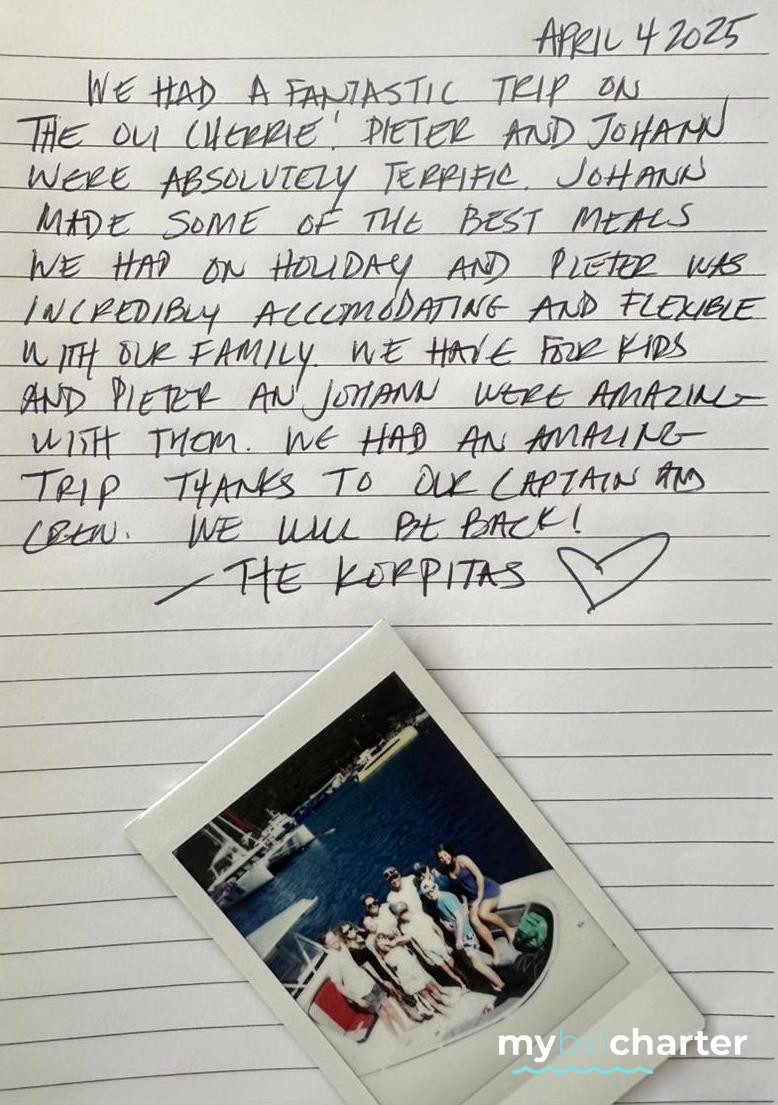 APRIL 4 2025
WE HAD A FANTASTIC TRIP ON
THE OUI CHERRIE! PIETER AND JOHANN
WERE ABSOLUTELY TERRIFIC. JOHANN
MADE SOME OF THE BEST MEALS
WE HAD ON HOLIDAY AND PIETER WAS
INCREDIBLY ACCOMODATING AND FLEXIBLE
WITH OUR FAMILY. WE HAVE FOUR KIDS
AND PIETER AN JOHANN WERE AMAZING
WITH THEM. WE HAD AN AMAZING
TRIP THANKS TO OUR CAPTAIN AND
CREW. WE WILL BE BACK!
— THE KORPITAS
mybvicharter